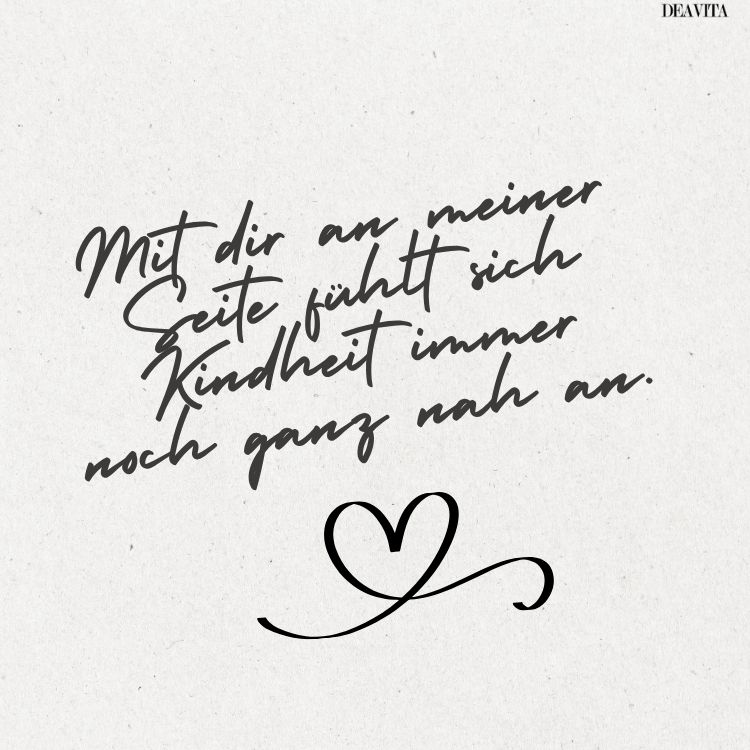 DEAVITA
Mit dir an meiner
Seite fühlt sich
Kindheit immer
noch ganz nah an.